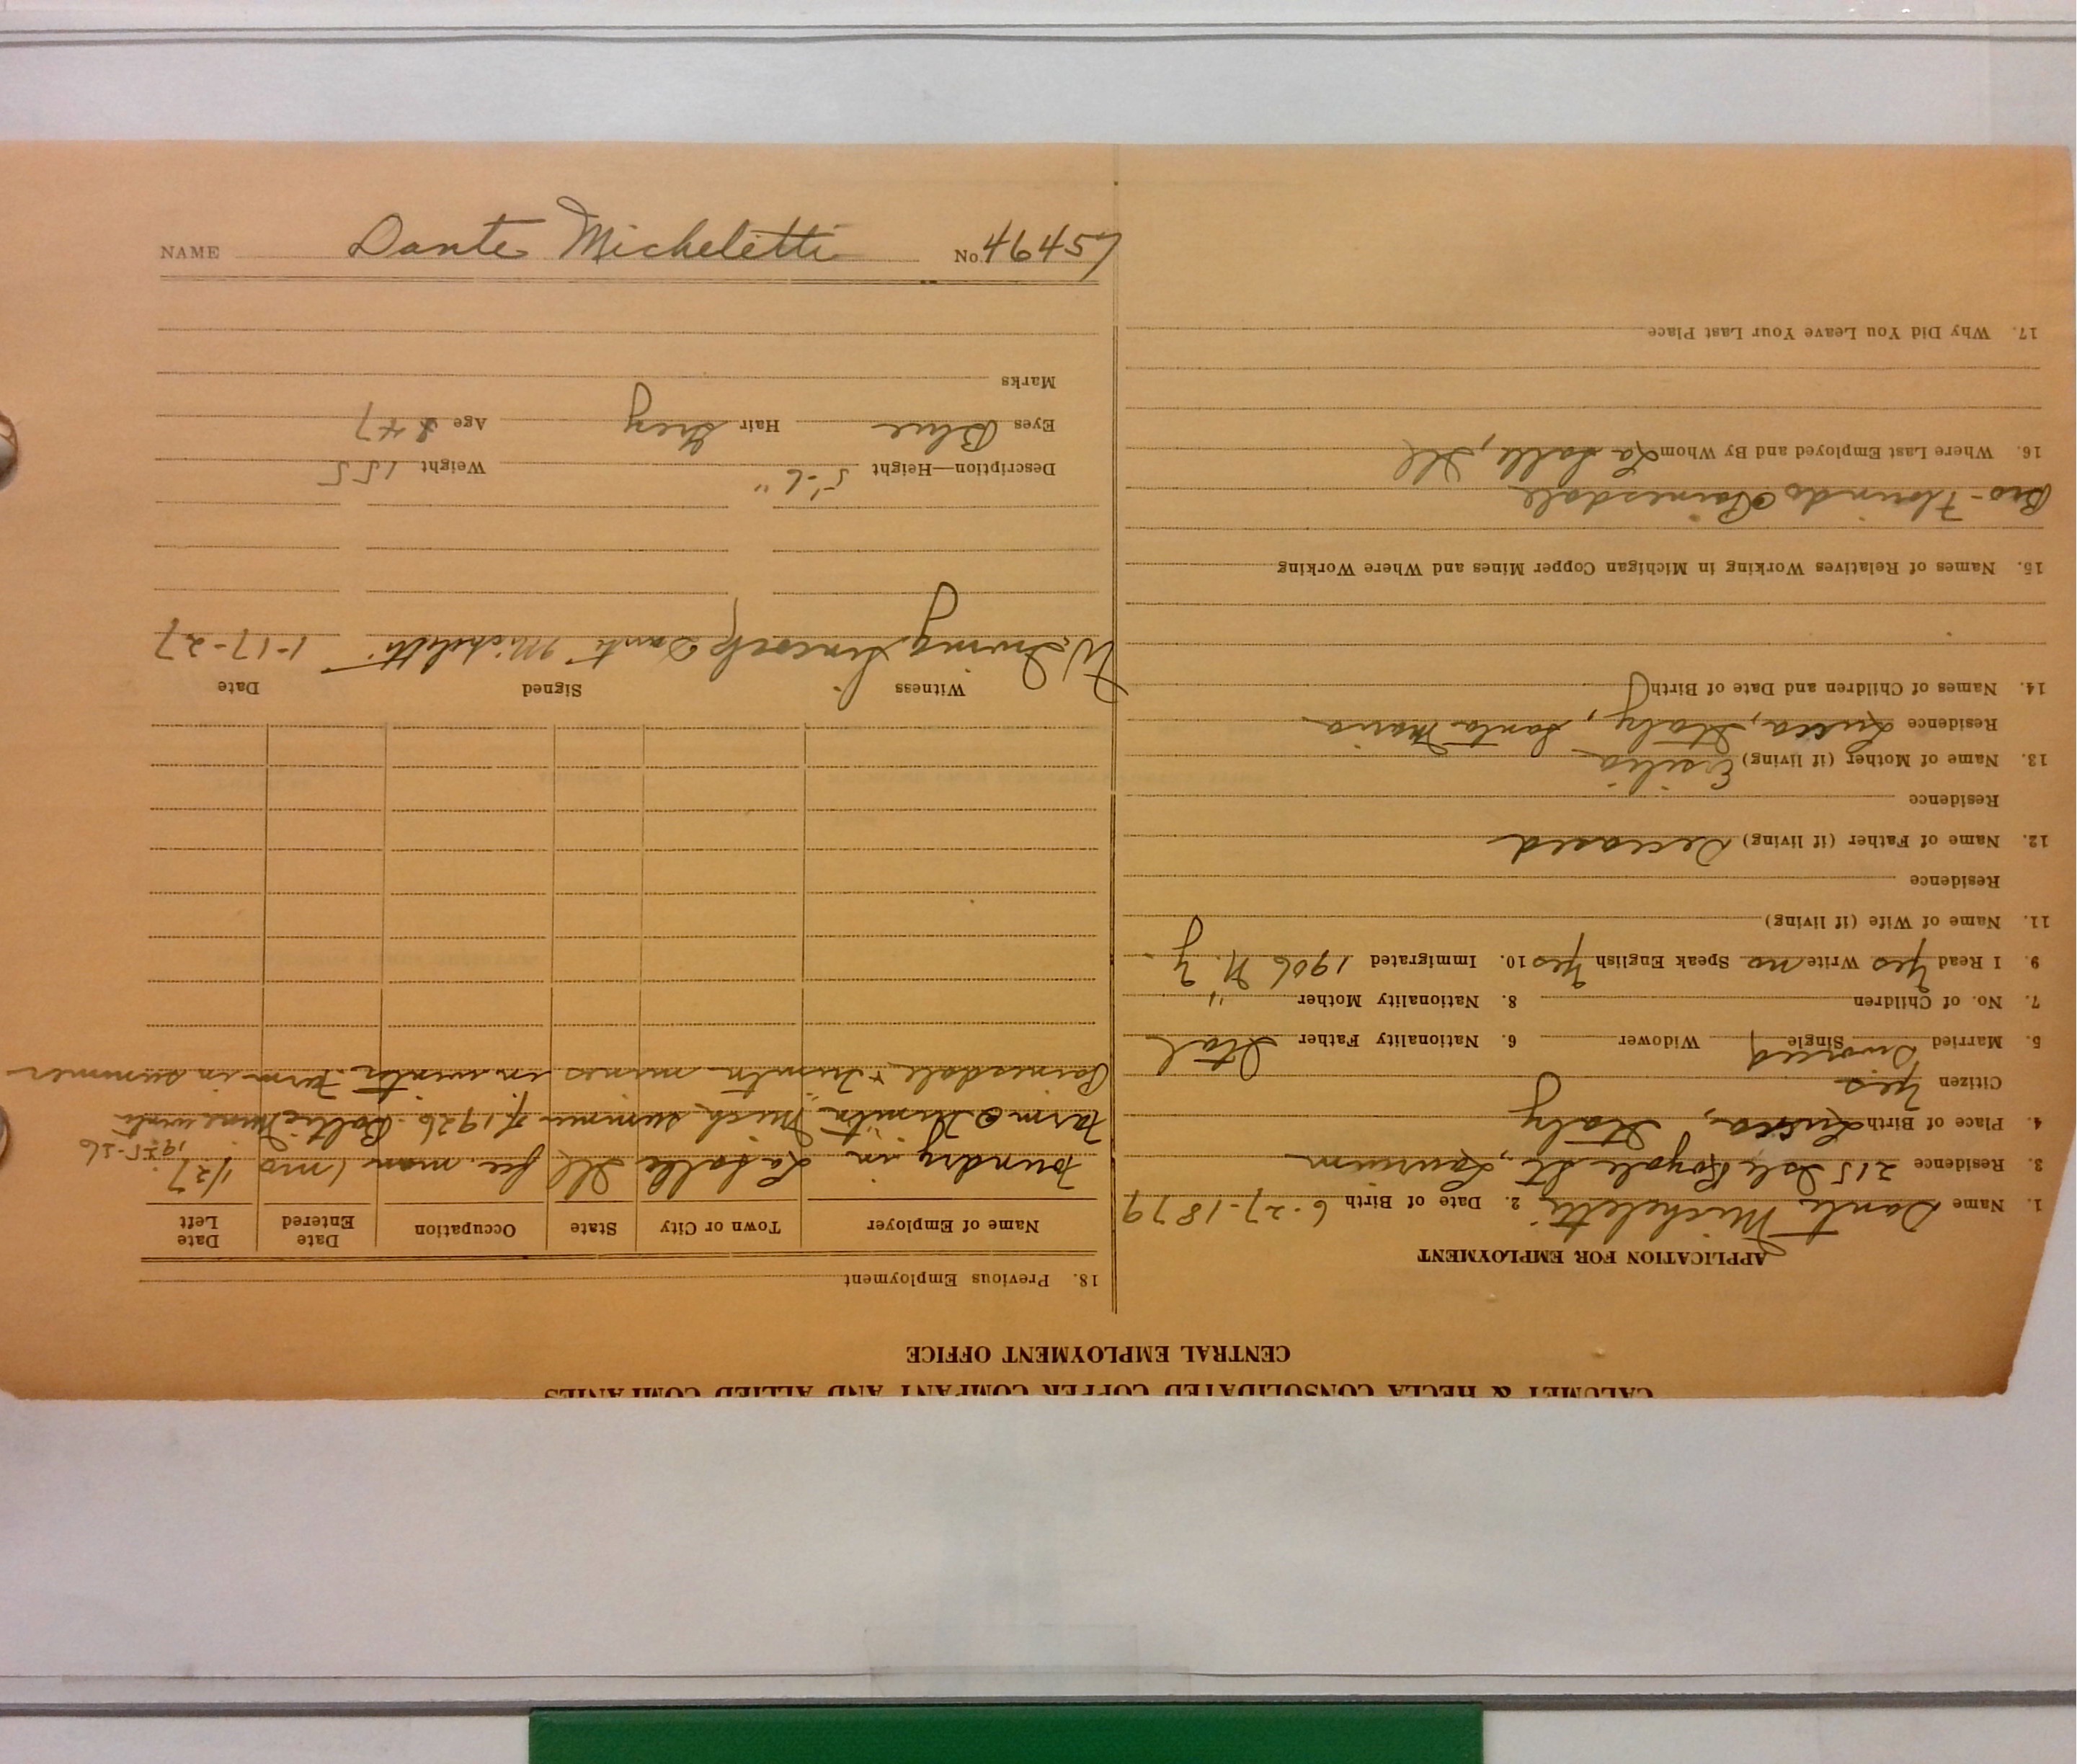 CALUMET & HECLA CONSOLIDATED COPPER COMPANY AND ALLIED COMPANIES
CENTRAL EMPLOYMENT OFFICE
APPLICATION FOR EMPLOYMENT
1. Name Dante Micheletti 2. Date of Birth 6-27-1879
3. Residence 215 Isle Royale St, Laurium
4. Place of Birth Lucca, Italy
Citizen Yes
5. Married Single Divorced Widower 6. Nationality Father Ital
7. No. of Children 8. Nationality Mother "
9. I Read Yes Write no Speak English Yes 10. Immigrated 1906 N.Y.
11. Name of Wife (if living)
Residence
12. Name of Father (if living) Deceased
Residence
13. Name of Mother (if living) Ersilia
Residence Lucca, Italy, Santa Maria
14. Names of Children and Date of Birth
15. Names of Relatives Working in Michigan Copper Mines and Where Working
Bro- Florindo Painesdale
16. Where Last Employed and By Whom La Salle, Ill
17. Why Did You Leave Your Last Place
18. Previous Employment
Name of Employer Town or City State Occupation Date Entered Date Left
Foundry in La Salle Ill fce. man 1 mo 1/27
Farm Mich summer of 1926. Baltic Mine winter 1925-26
Painesdale & mines in winter farm in summer
Witness Signed Date
W. Irving Dante Micheletti 1-17-27
Description—Height 5'-6" Weight 155
Eyes Blue Hair Grey Age 47
Marks
NAME Dante Micheletti No. 46457